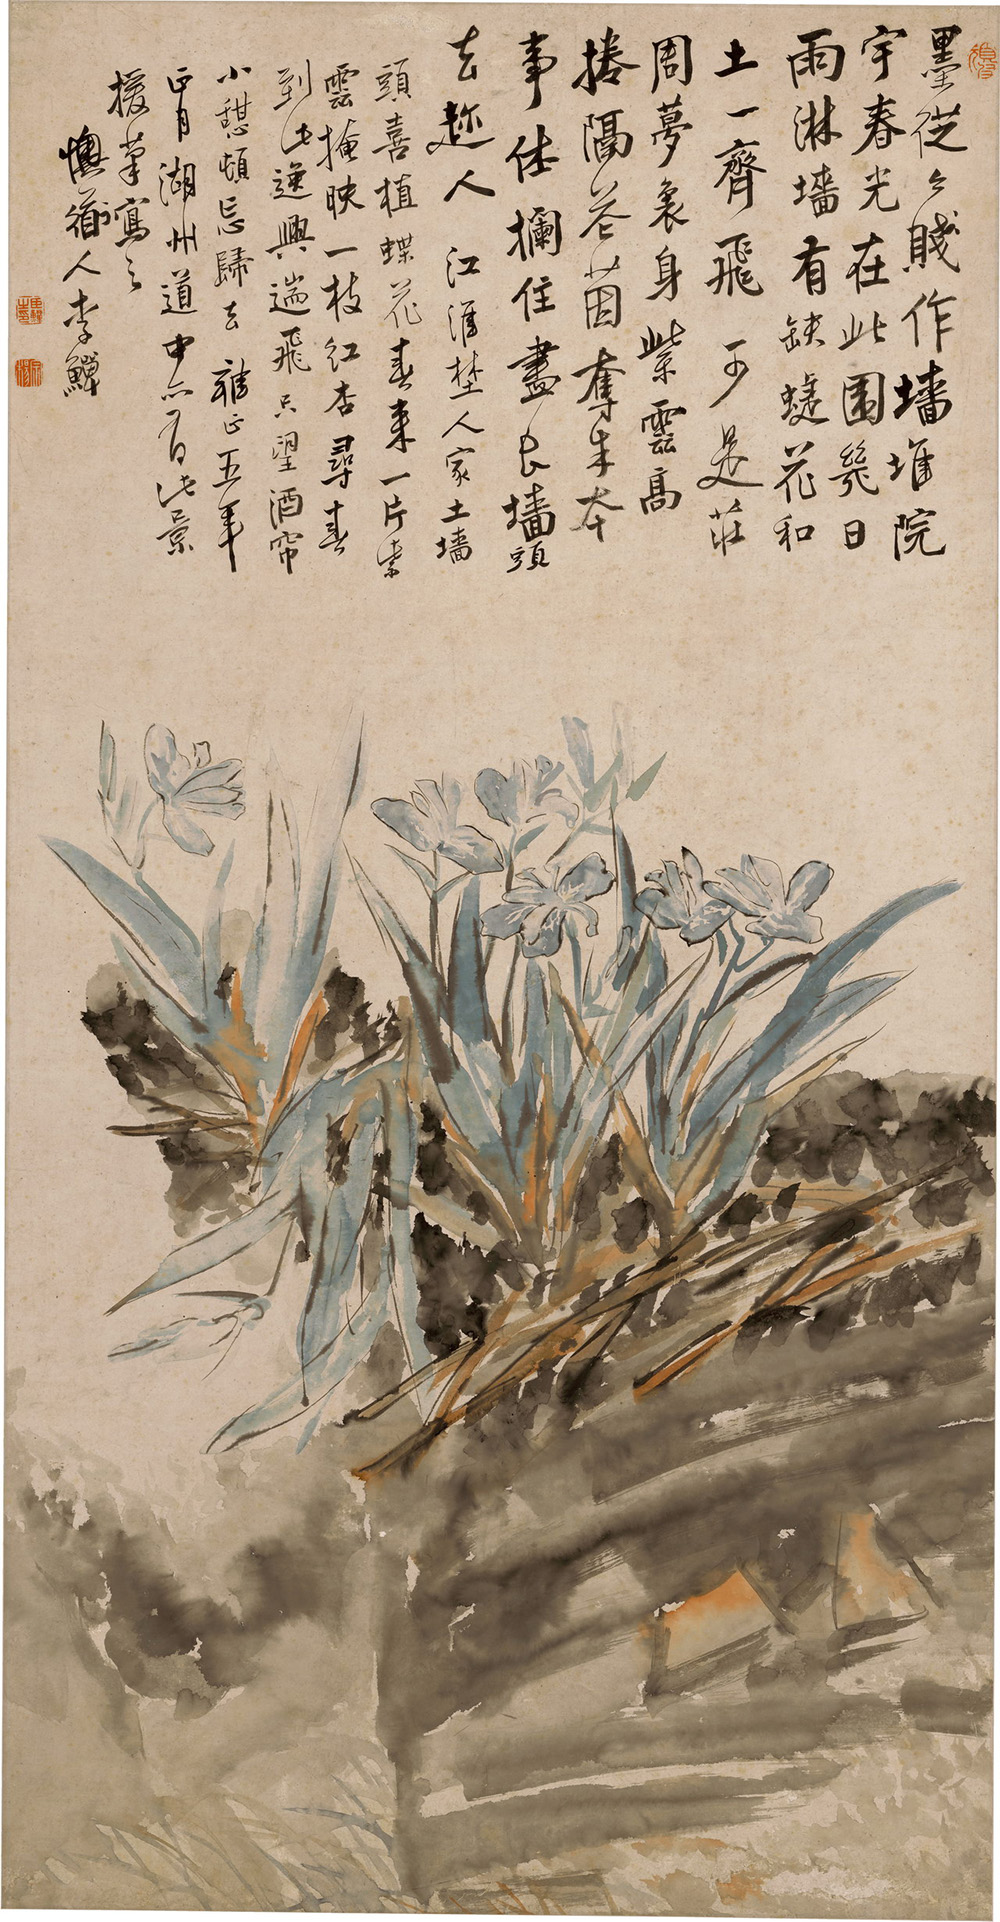 墨從今賤作墻堆院
宇春光在此圍幾日
雨淋墻有缺蝶花和
土一齊飛 可是莊
周夢裏身 紫雲高
捲隔花茵奪朱本
事休攔住盡長墻頭
去趁人 江淮埜人家土墻
頭喜植蝶花春來一片紫
雲掩映一枝紅杏尋春
到此逸興遄飛只望酒帘
小憩頓忘歸去 雍正五年
正月湖州道中亦有此景
援筆寫之
懊道人李鱓